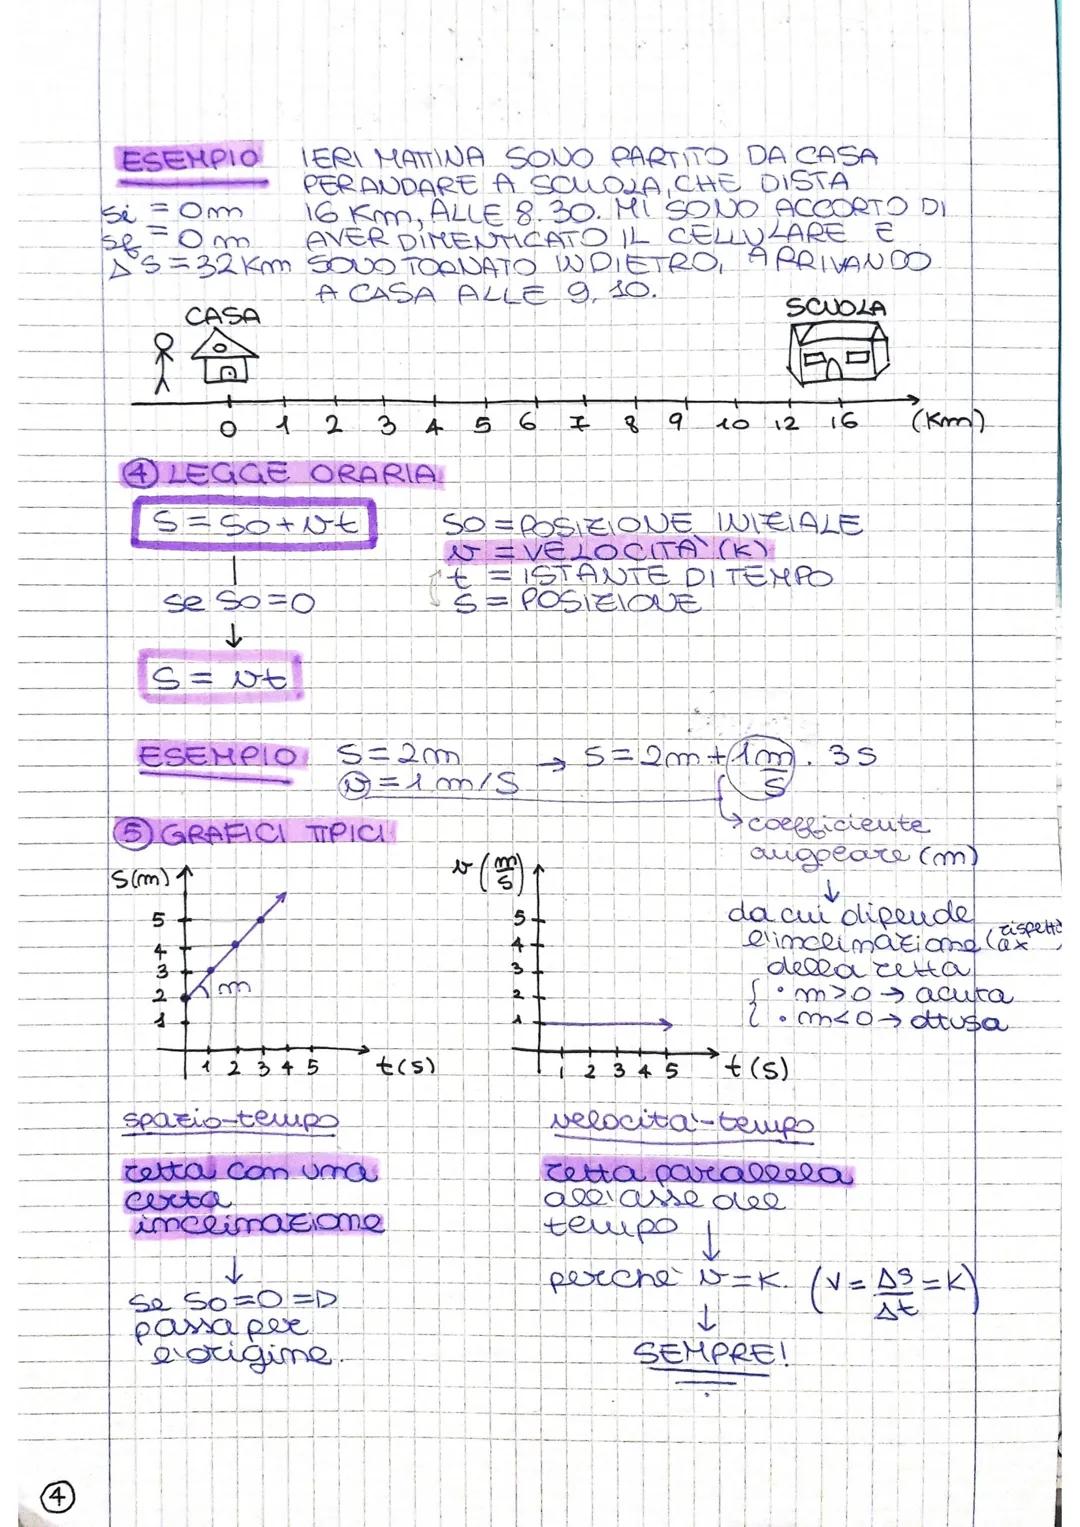 ESEMPIO IERI MATTINA SONO PARTITO DA CASA
PER ANDARE A SCUOLA, CHE DISTA
Si = 0m 16 Km, ALLE 8.30. MI SONO ACCORTO DI
Sf = 0m AVER DIMENTICATO IL CELLULARE E
ΔS = 32 Km SONO TORNATO INDIETRO, ARRIVANDO
A CASA ALLE 9,10.
CASA SCUOLA
0 1 2 3 4 5 6 7 8 9 10 12 16 (Km)
④ LEGGE ORARIA
S = So + vt SO = POSIZIONE INIZIALE
v = VELOCITÀ (K)
t = ISTANTE DI TEMPO
se So=0 S = POSIZIONE
↓
S = vt
ESEMPIO S = 2m → S = 2m + 1m/s . 3s
v = 1 m/s
↳ coefficiente
angolare (m)
↓
da cui dipende
l'inclinazione (rispetto a x)
della retta
• m>0 → acuta
• m<0 → ottusa
⑤ GRAFICI TIPICI
S(m)
5
4
3
2 m
1
1 2 3 4 5 t(s)
v (m/s)
5
4
3
2
1
1 2 3 4 5 t(s)
spazio-tempo
retta con una
certa
inclinazione
↓
se So=0 =D
passa per
l'origine.
velocità-tempo
retta parallela
all'asse del
tempo
↓
perché v=K. (V = ΔS/Δt = K)
↓
SEMPRE!
④